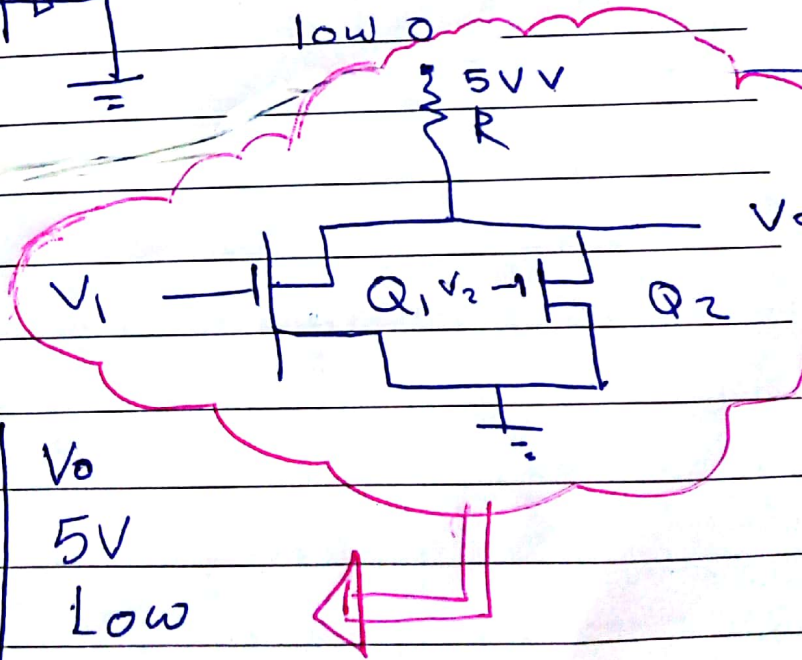 low 0
5V V
R
V
V₁ Q₁ V₂ Q₂
Vo
5V
Low